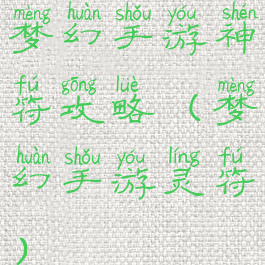 mèng huàn shǒu yóu shén
梦幻手游神
fú gōng lüè mèng
符攻略（梦
huàn shǒu yóu líng fú
幻手游灵符
）